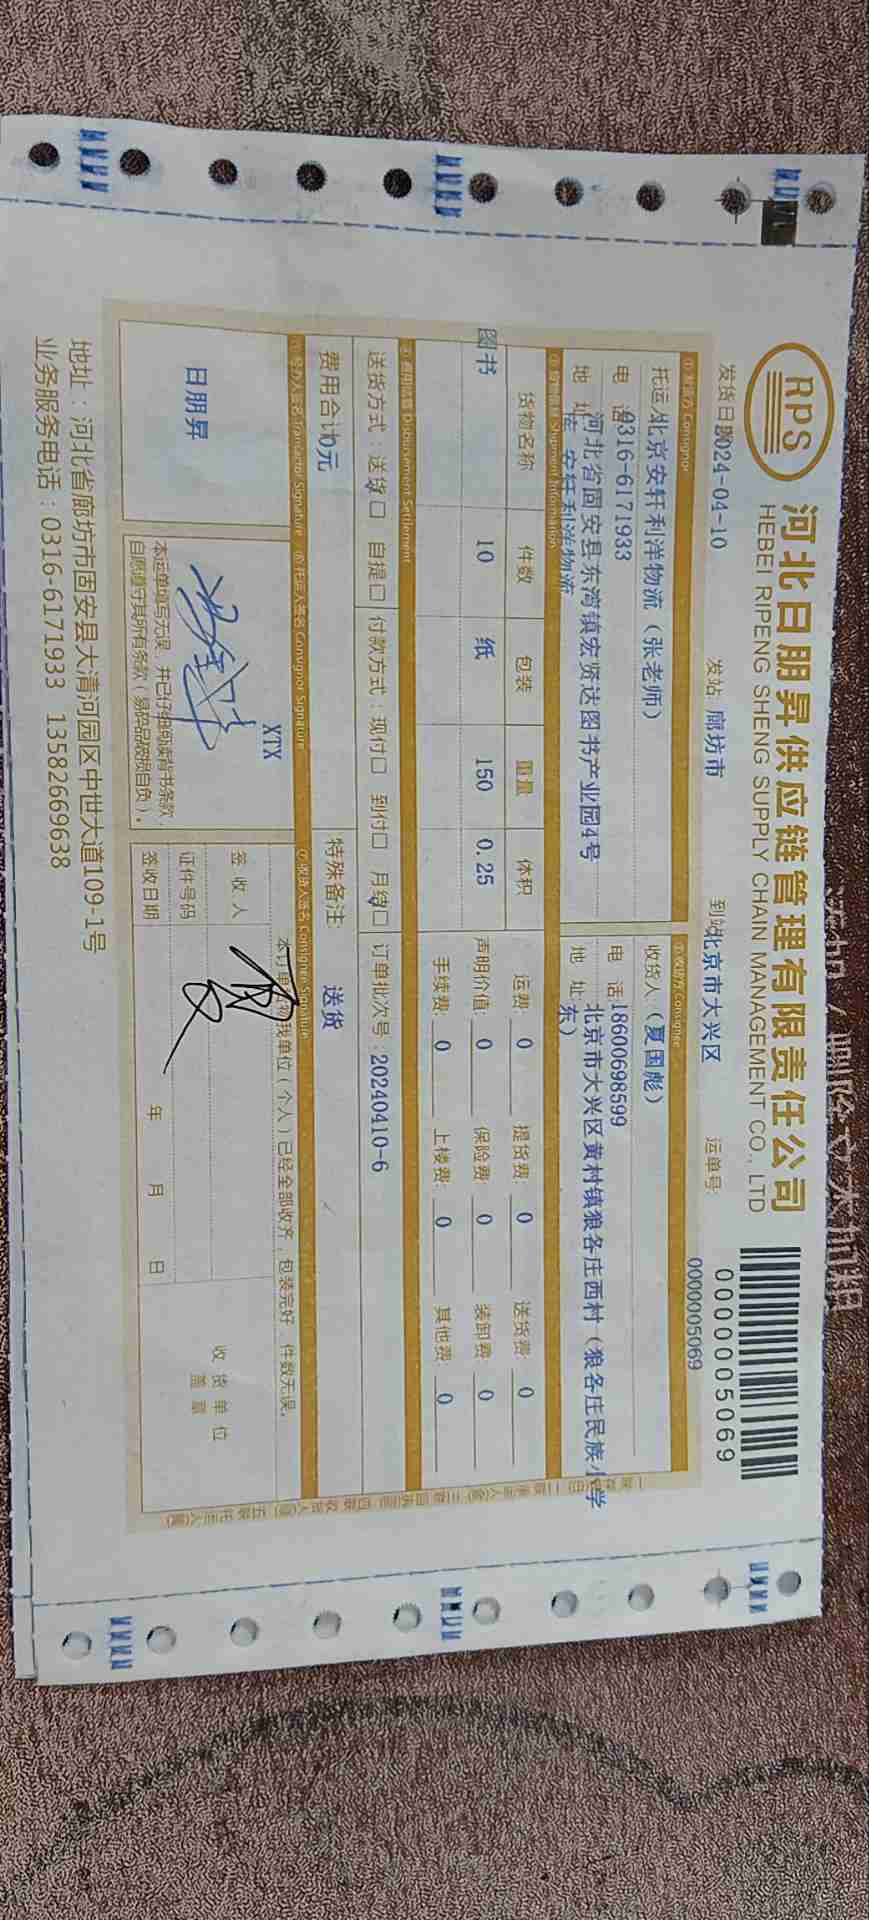 RPS
河北日朋昇供应链管理有限责任公司
HEBEI RIPENG SHENG SUPPLY CHAIN MANAGEMENT CO., LTD
0000005069
发货日期 2024-04-10 发站 廊坊市 到站 北京市大兴区 运单号: 0000005069
①发货方 Consignor
托运人 北京安轩利洋物流（张老师）
电 话 0316-6171933
地 址 河北省固安县东湾镇宏贤达图书产业园4号
库 安轩利洋物流
②收货方 Consignee
收货人 （夏国彪）
电 话 18600698599
地 址 北京市大兴区黄村镇狼各庄西村（狼各庄民族小学
东）
③货物信息 Shipment Information
货物名称 件数 包装 重量 体积
图书 10 纸 150 0.25
运费: 0 提货费: 0 送货费: 0
声明价值: 0 保险费: 0 装卸费: 0
手续费: 0 上楼费: 0 其他费: 0
④费用结算 Disbursement Settlement
送货方式: 送货□ 自提□ 付款方式: 现付□ 到付□ 月结□ 订单批次号: 20240410-6
费用合计 0元 特殊备注: 送货
⑤经办人签名 Transactor Signature ⑥托运人签名 Consignor Signature ⑦收货人签名 Consignee Signature
日朋昇
XTX
本运单填写无误，并已仔细阅读背书条款，
自愿遵守其所有条款（易碎品破损自负）。
本订单货物我单位（个人）已经全部收齐，包装完好，件数无误。
签 收 人
证件号码
签收日期 年 月 日
收 货 单 位
盖 章
地址：河北省廊坊市固安县大清河园区中世大道109-1号
业务服务电话：0316-6171933 13582669638